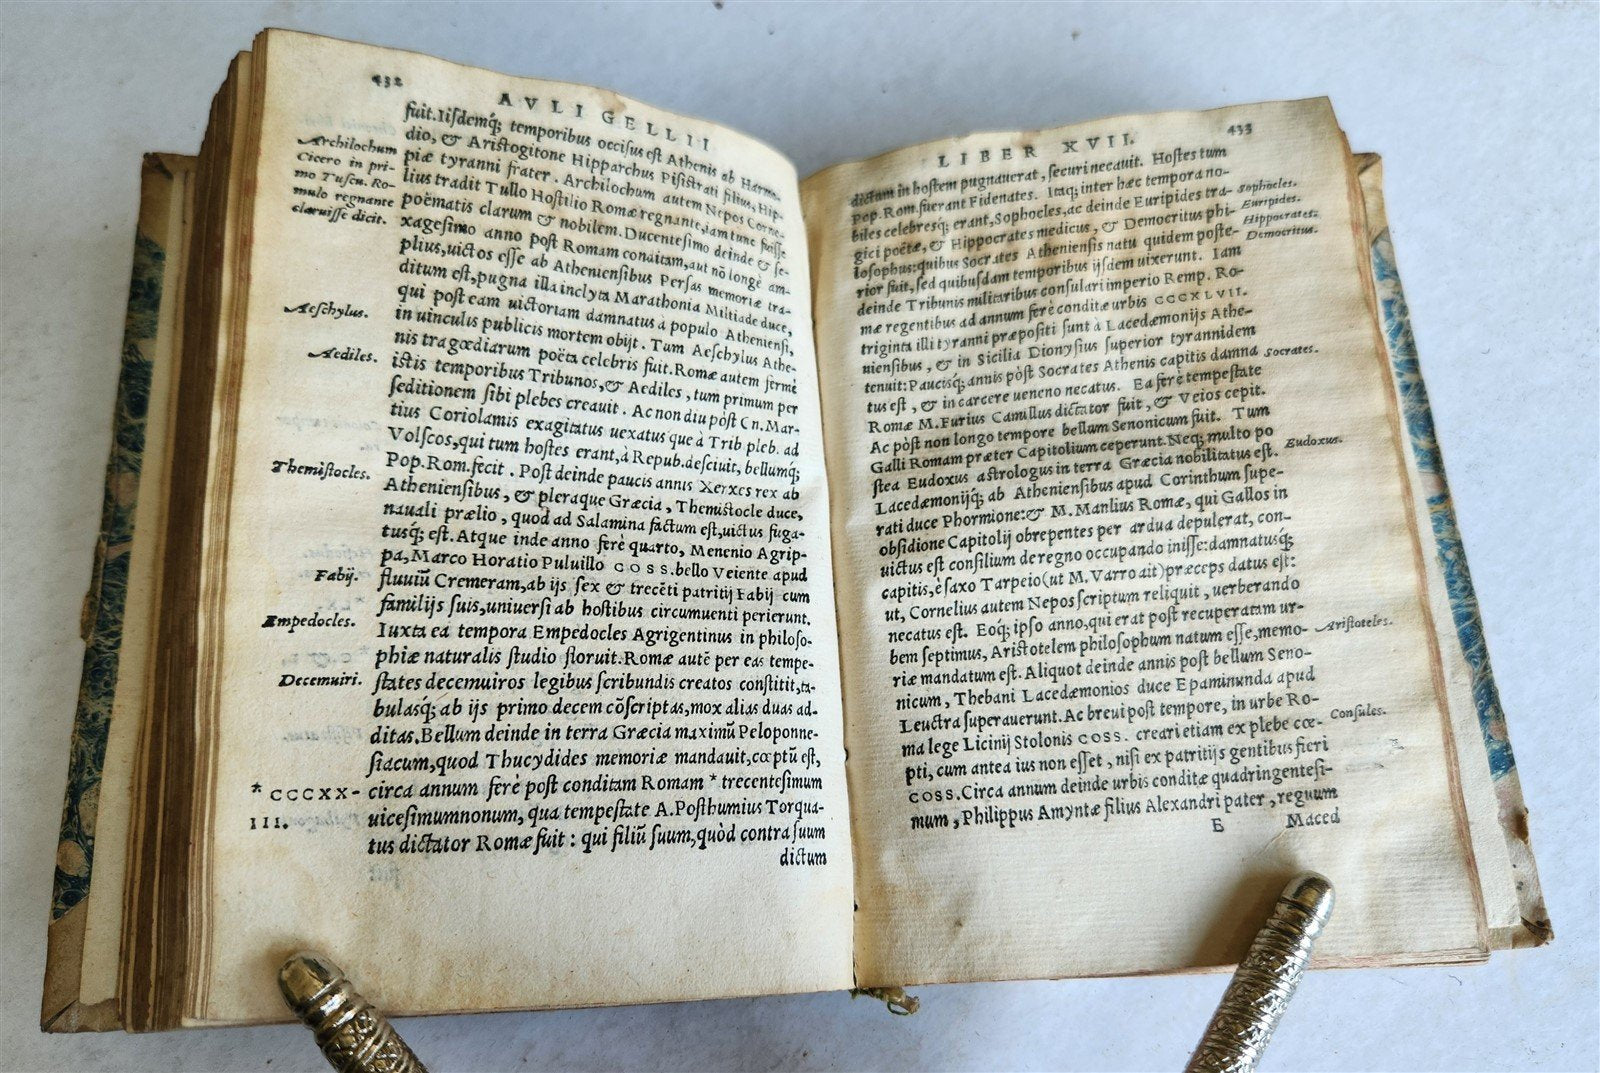 432
AVLI GELLII
fuit. Iisdemq́; temporibus occisus est Athenis ab Harmo-
dio, & Aristogitone Hipparchus Pisistrati filius, Hip-
piæ tyranni frater. Archilochum autem Nepos Corne-
lius tradit Tullo Hostilio Romæ regnante, iam tunc fuisse
poëmatis clarum & nobilem. Ducentesimo deinde & se-
xagesimo anno post Romam conditam, aut nõ longè am-
plius, uictos esse ab Atheniensibus Persas memoriæ tra-
ditum est, pugna illa inclyta Marathonia Miltiade duce,
qui post eam uictoriam damnatus à populo Atheniensi,
in uinculis publicis mortem obijt. Tum Aeschylus Athe-
nis tragœdiarum poëta celebris fuit. Romæ autem fermè
istis temporibus Tribunos, & Aediles, tum primum per
seditionem sibi plebes creauit. Ac non diu pòst Cn. Mar-
tius Coriolanus exagitatus uexatus que à Trib. pleb. ad
Volscos, qui tum hostes erant, à Repub. desciuit, bellumq́;
Pop. Rom. fecit. Post deinde paucis annis Xerxes rex ab
Atheniensibus, & pleraque Græcia, Themistocle duce,
nauali prælio, quod ad Salamina factum est, uictus fuga-
tusq́; est. Atque inde anno ferè quarto, Menenio Agrip-
pa, Marco Horatio Puluillo COSS. bello Veiente apud
fluuiũ Cremeram, ab ijs sex & trecẽti patritij Fabij cum
familijs suis, uniuersi ab hostibus circumuenti perierunt.
Iuxta ea tempora Empedocles Agrigentinus in philoso-
phiæ naturalis studio floruit. Romæ autẽ per eas tempe-
states decemuiros legibus scribundis creatos constitit, ta-
bulasq́; ab ijs primo decem cõscriptas, mox alias duas ad-
ditas. Bellum deinde in terra Græcia maximũ Peloponne-
siacum, quod Thucydides memoriæ mandauit, cœptũ est,
circa annum ferè post conditam Romam * trecentesimum
uicesimumnonum, qua tempestate A. Posthumius Torqua-
tus dictator Romæ fuit: qui filiũ suum, quòd contra suum
dictum
Archilochum
Cicero in pri-
mo Tuscu. Ro-
mulo regnante
claruisse dicit.
Aeschylus.
Aediles.
Themistocles.
Fabij.
Empedocles.
Decemuiri.
* CCCXX-
III.
LIBER XVII.
433
dictam in hostem pugnauerat, securi necauit. Hostes tum
Pop. Rom. fuerant Fidenates. Itaq; inter hæc tempora no-
biles celebresq́; erant, Sophocles, ac deinde Euripides tra-
gici poëtæ, & Hippocrates medicus, & Democritus phi-
losophus: quibus Socrates Atheniensis natu quidem poste-
rior fuit, sed quibusdam temporibus ijsdem uixerunt. Iam
deinde Tribunis militaribus consulari imperio Remp. Ro-
mæ regentibus ad annum ferè conditæ urbis CCCXLVII.
triginta illi tyranni præpositi sunt à Lacedæmonijs Athe-
niensibus, & in Sicilia Dionysius superior tyrannidem
tenuit: Paucisq́; annis pòst Socrates Athenis capitis damna
tus est, & in carcere ueneno necatus. Ea ferè tempestate
Romæ M. Furius Camillus dictator fuit, & Veios cepit.
Ac pòst non longo tempore bellum Senonicum fuit. Tum
Galli Romam præter Capitolium ceperunt. Neq; multo po
stea Eudoxus astrologus in terra Græcia nobilitatus est.
Lacedæmonijq́; ab Atheniensibus apud Corinthum supe-
rati duce Phormione: & M. Manlius Romæ, qui Gallos in
obsidione Capitolij obrepentes per ardua depulerat, con-
uictus est consilium de regno occupando inisse: damnatusq́;
capitis, è saxo Tarpeio (ut M. Varro ait) præceps datus est:
ut, Cornelius autem Nepos scriptum reliquit, uerberando
necatus est. Eoq́; ipso anno, qui erat post recuperatam ur-
bem septimus, Aristotelem philosophum natum esse, memo-
riæ mandatum est. Aliquot deinde annis post bellum Seno-
nicum, Thebani Lacedæmonios duce Epaminunda apud
Leuctra superauerunt. Ac breui post tempore, in urbe Ro-
ma lege Licinij Stolonis COSS. creari etiam ex plebe cœ-
pti, cum antea ius non esset, nisi ex patritijs gentibus fieri
COSS. Circa annum deinde urbis conditæ quadringentesi-
mum, Philippus Amyntæ filius Alexandri pater, regnum
E
Maced
Sophocles.
Euripides.
Hippocrates.
Democritus.
Socrates.
Eudoxus.
Aristoteles.
Consules.